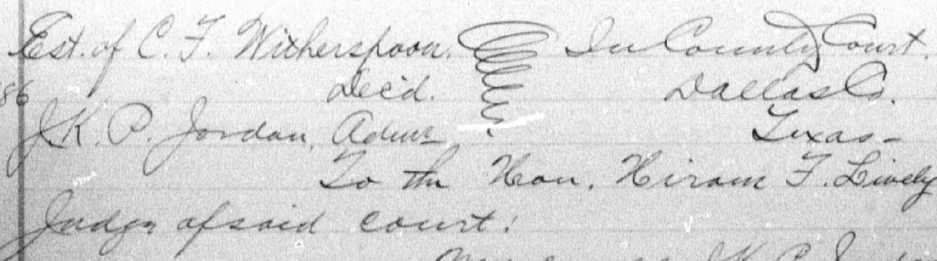 Est. of C. F. Witherspoon. In County Court.
86 Dec'd. Dallas Co.
J.K. P. Jordan, Admr Texas-
To the Hon. Hiram F. Lively
Judge of said court:
J.K. P.